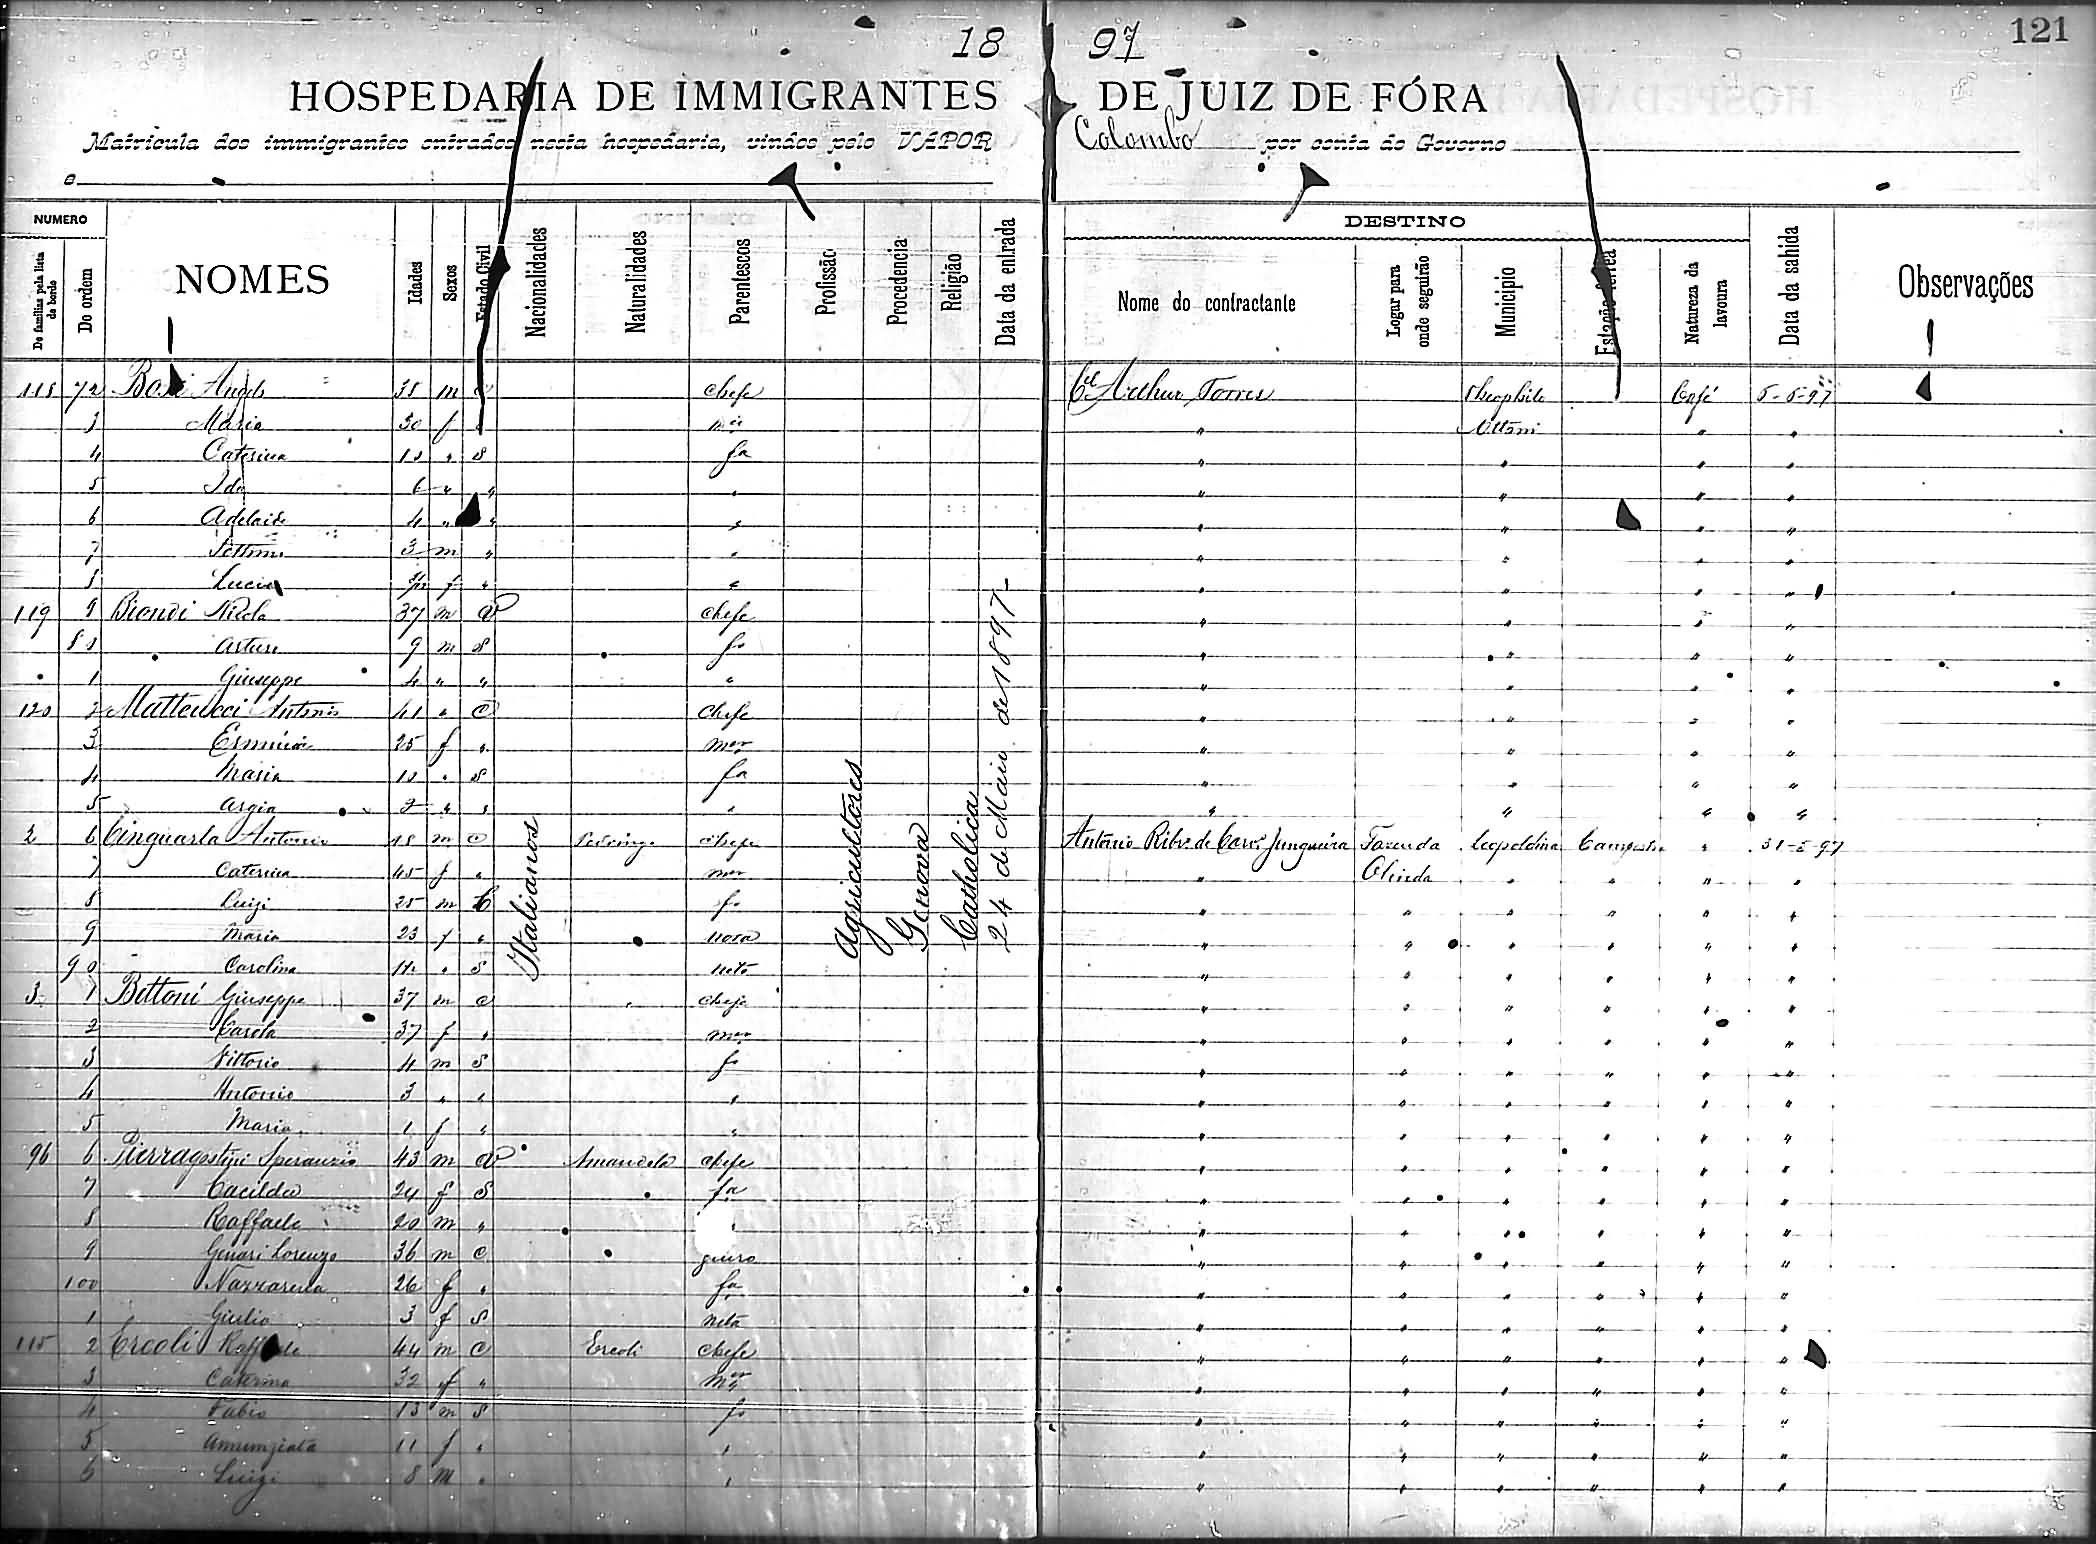 121
18 97
HOSPEDARIA DE IMMIGRANTES DE JUIZ DE FÓRA
Matricula dos immigrantes entrados nesta hospedaria, vindos pelo VAPOR Colombo por conta do Governo
NUMERO
DESTINO
De familias pela lista de bordo
Do ordem
NOMES
Idades
Sexos
Estado Civil
Nacionalidades
Naturalidades
Parentescos
Profissão
Procedencia
Religião
Data da entrada
Nome do contractante
Logar para onde seguirão
Municipio
Estação ferrea
Natureza da lavoura
Data da sahida
Observações
Italianos
Agricultores
Genova
Catholica
24 de Maio de 1897
118 72 Angelo 35 m chefe Cel Arthur Torres Theophilo Café 5-6-97
3 Maria 30 f " Ottoni " "
4 Caterina 10 " S fa " " " "
5 Ida 6 " " " " " " "
6 Adelaide 4 " " " " " " "
7 3 m " " " " " "
8 Lucia f " " " " " "
119 9 Biondi Nicola 37 m V chefe " " " "
80 Arturo 9 m S fo " " " "
1 Giuseppe 4 " " " " " " "
120 2 Matteucci Antonio 41 " C chefe " " " "
3 25 f " mer " " " "
4 Maria 10 " S fa " " " "
5 Argia 2 " " " " " " "
2 6 Antonio 48 m C chefe Antonio Ribo. de Caro. Junqueira Fazenda Leopoldina " 31-5-97
7 Caterina 45 f " mer " Olinda " " " "
8 Luigi 25 m C fo " " " " " "
9 Maria 23 f " nora " " " " " "
90 Carolina " S neto " " " " " "
3 1 Bettoni Giuseppe 37 m C " chefe " " " " " "
2 Carola 37 f " mer " " " " " "
3 Vittorio 4 m S fo " " " " " "
4 Antonio 3 " " " " " " " " "
5 Maria 1 f " " " " " " " "
96 6 Pierragostini Speranzio 43 m V Amandola chefe " " " " " "
7 Cacilda 24 f S " fa " " " " " "
8 Raffaele 20 m " " " " " " " "
9 Genari Lorenzo 36 m C " " " " " " "
100 Nazzarena 26 f " fa " " " " " "
1 Giulio 3 f S neta " " " " " "
115 2 Ercoli Raffaele 44 m C Ercoli chefe " " " " " "
3 Caterina 32 f " mer " " " " " "
4 Fabio 13 m S fo " " " " " "
5 Annunziata 11 f " " " " " " " "
6 Luigi 8 m " " " " " " " "